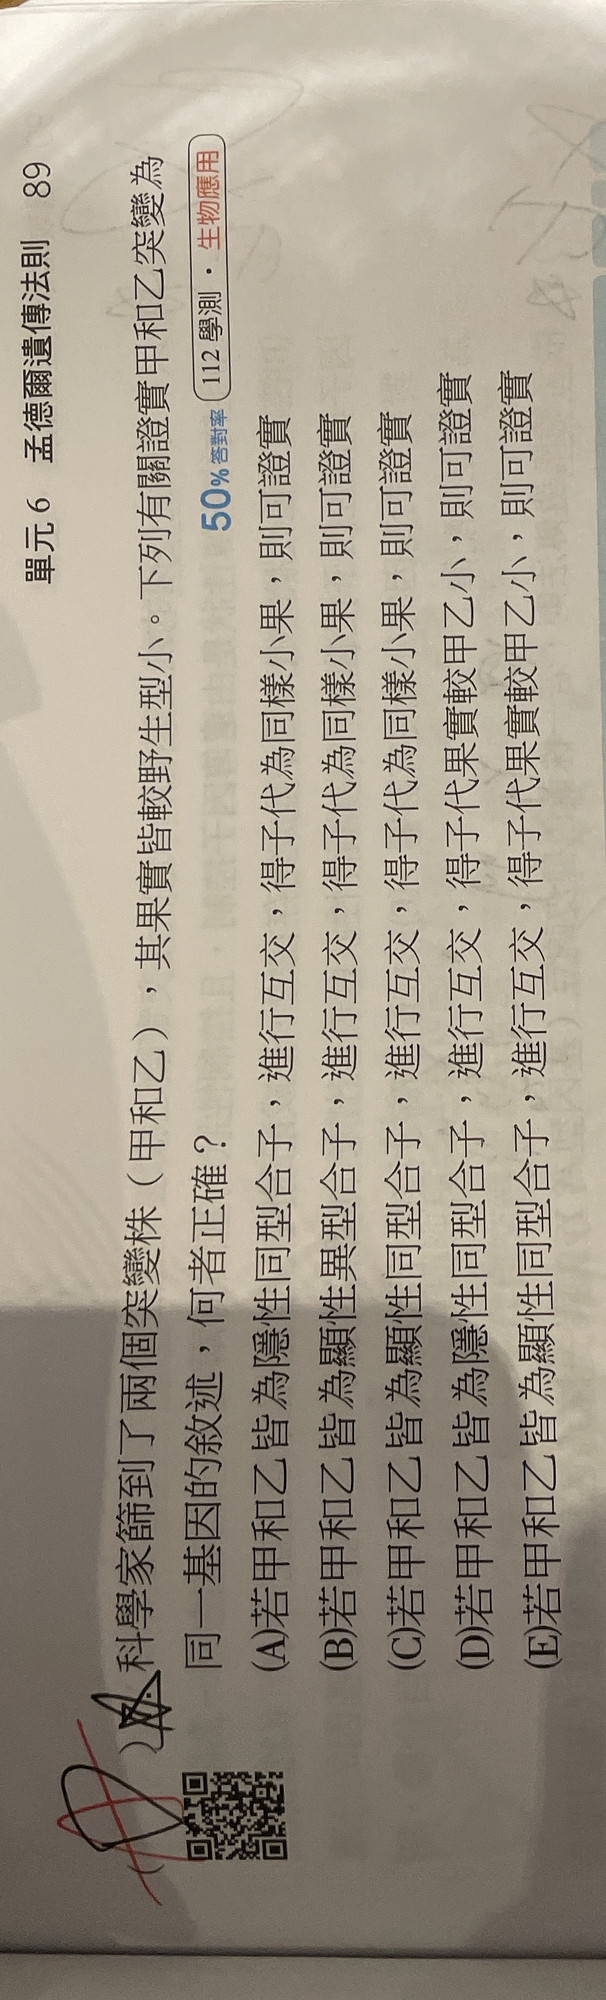 單元 6　孟德爾遺傳法則　89
( ) 科學家篩到了兩個突變株（甲和乙），其果實皆較野生型小。下列有關證實甲和乙突變為
同一基因的敘述，何者正確？　50%答對率　112 學測・生物應用
(A)若甲和乙皆為隱性同型合子，進行互交，得子代為同樣小果，則可證實
(B)若甲和乙皆為顯性異型合子，進行互交，得子代為同樣小果，則可證實
(C)若甲和乙皆為顯性同型合子，進行互交，得子代為同樣小果，則可證實
(D)若甲和乙皆為隱性同型合子，進行互交，得子代果實較甲乙小，則可證實
(E)若甲和乙皆為顯性同型合子，進行互交，得子代果實較甲乙小，則可證實